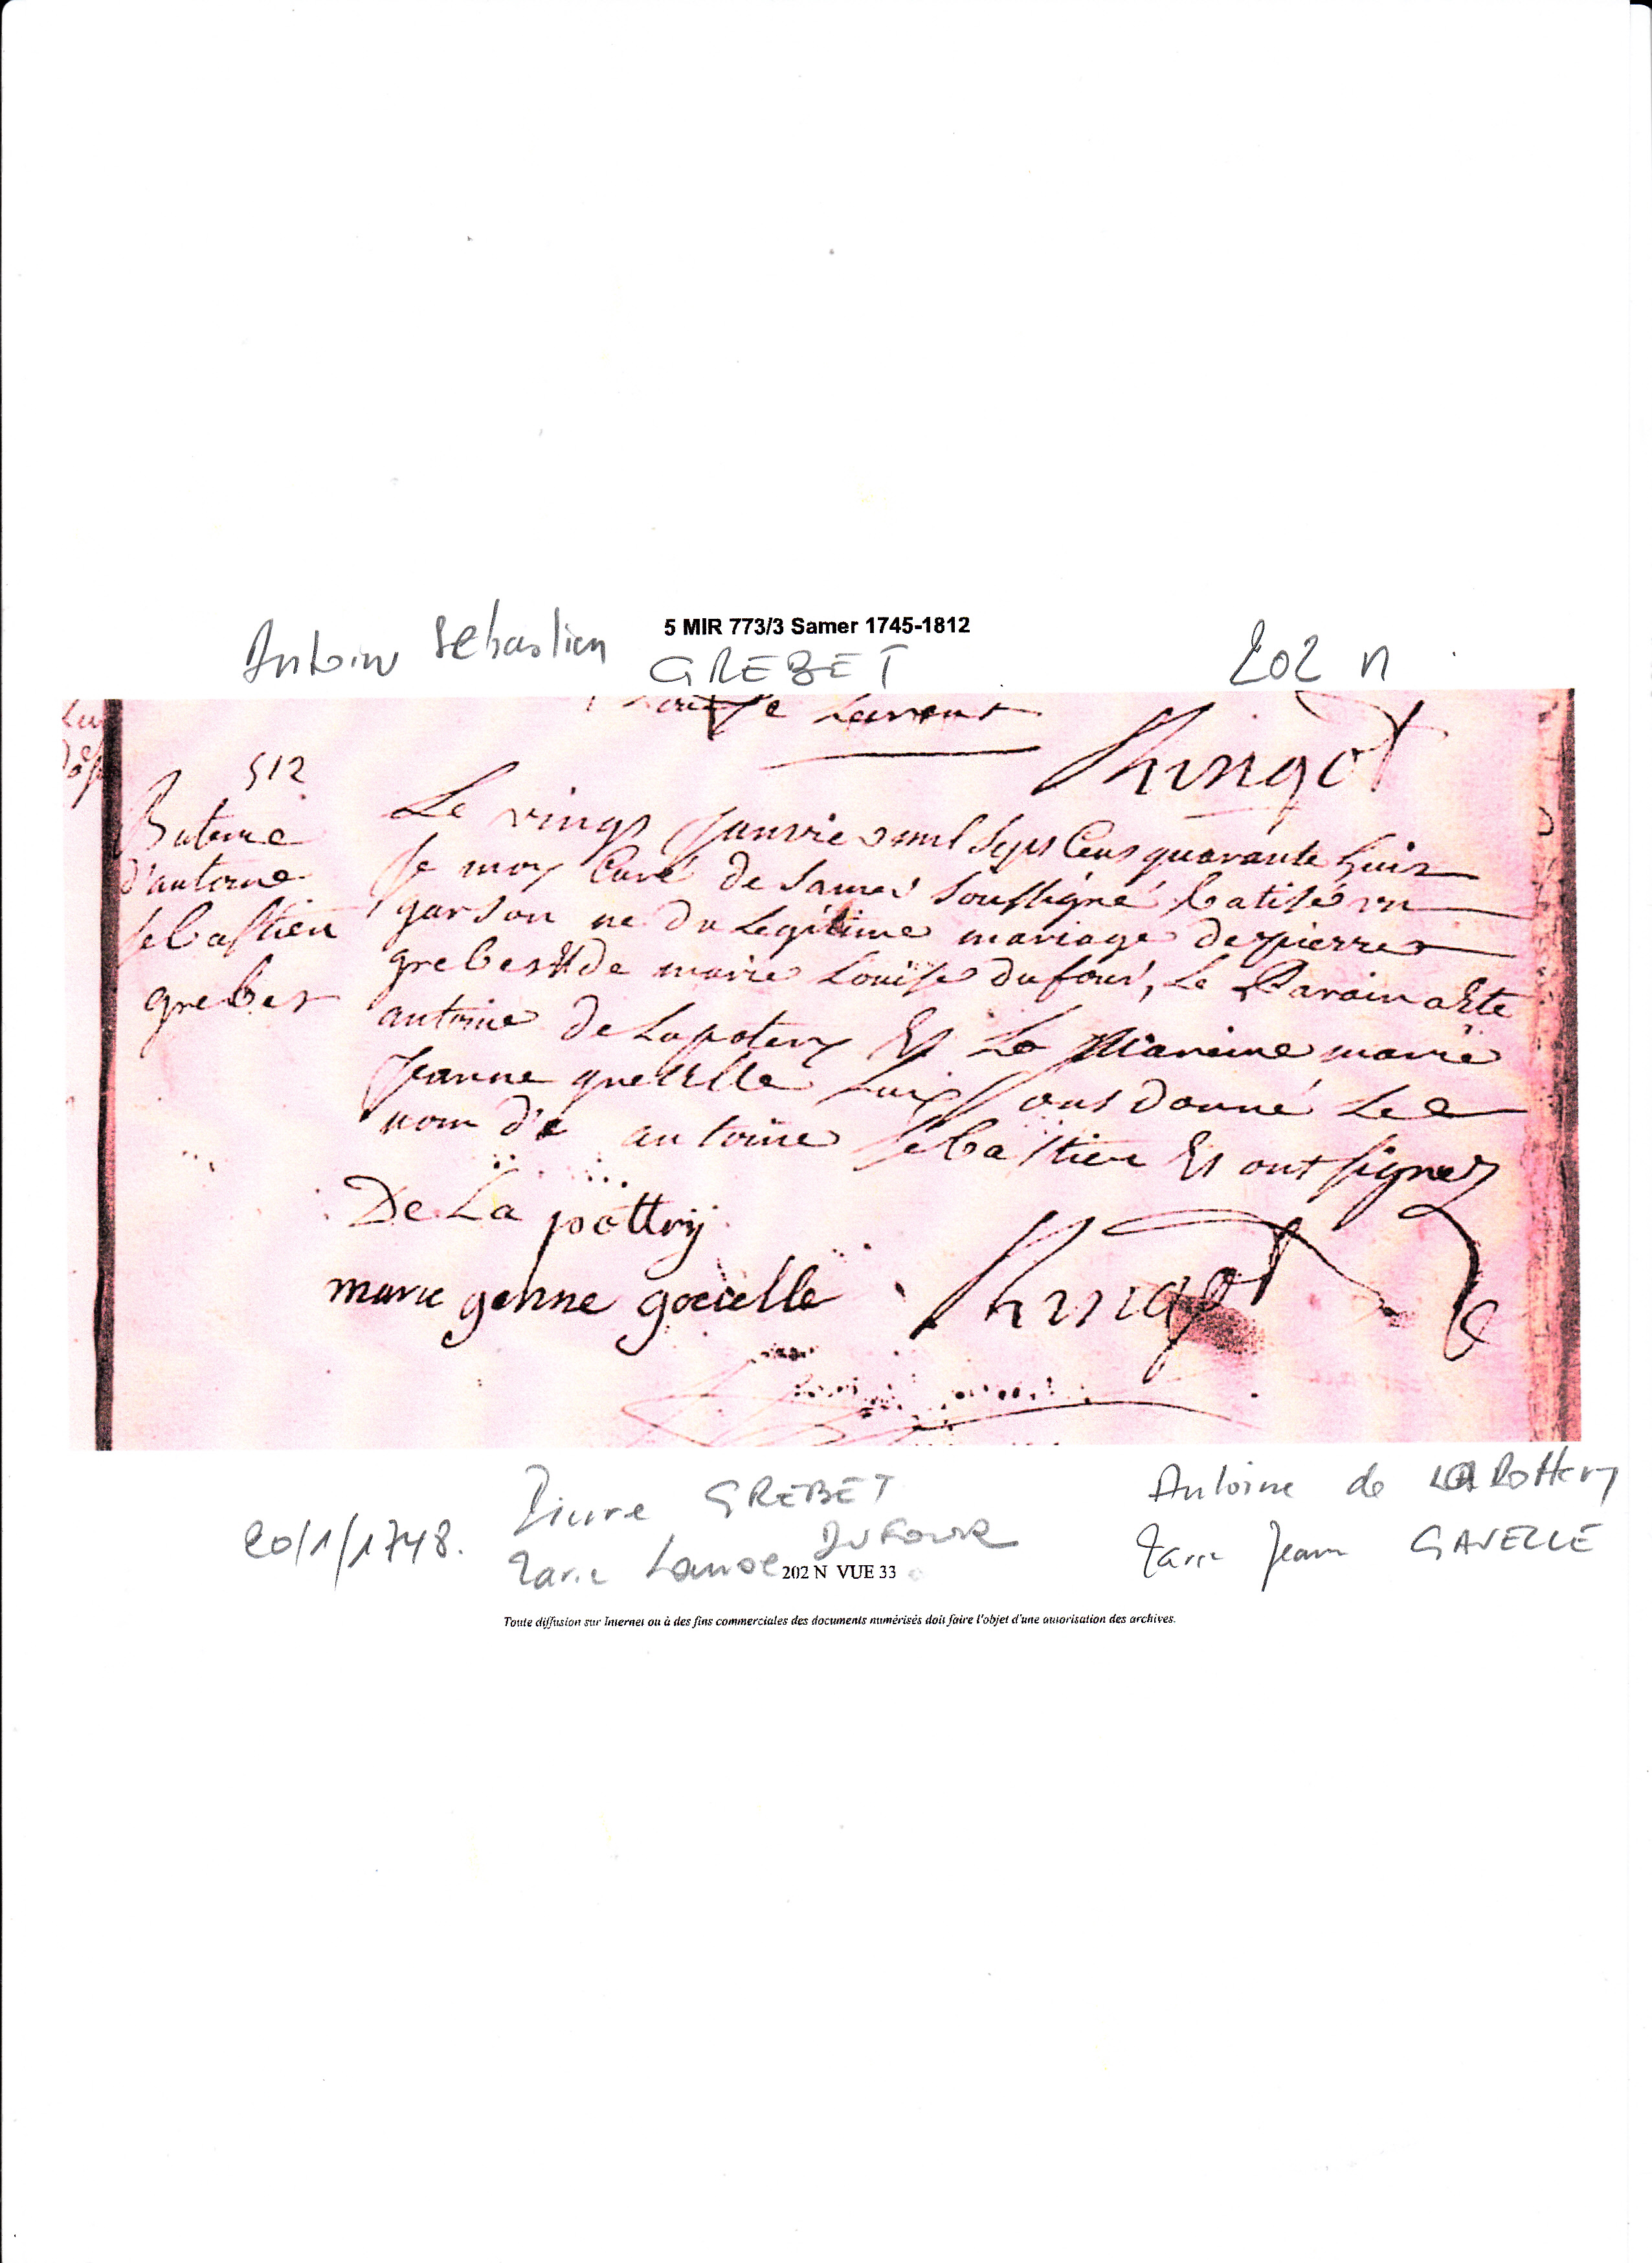 5 MIR 773/3 Samer 1745-1812
Antoine Sébastien
GREBET
202 N
Laurent
Hingot
512
Bateme
d'antoine
sebastien
grebet
Le vingt janvier mil sept cens quarante huit
je moy Curé de Samer soussigné batisé un
garson ne du Legitime mariage de pierre
grebet Et de marie Louise dufour, Le Parain a Ete
antoine de Lapotery Et La Maraine marie
Jeanne guelelle Luy ont donné Le
nom de antoine sebastien Et ont signez
De La pottry
marie genne goeuelle
Hingot
20/1/1748.
Pierre GREBET
Marie Louise DUFOUR
Antoine de LA Pottery
Marie Jeanne GAVELLE
202 N VUE 33
Toute diffusion sur Internet ou à des fins commerciales des documents numérisés doit faire l'objet d'une autorisation des archives.